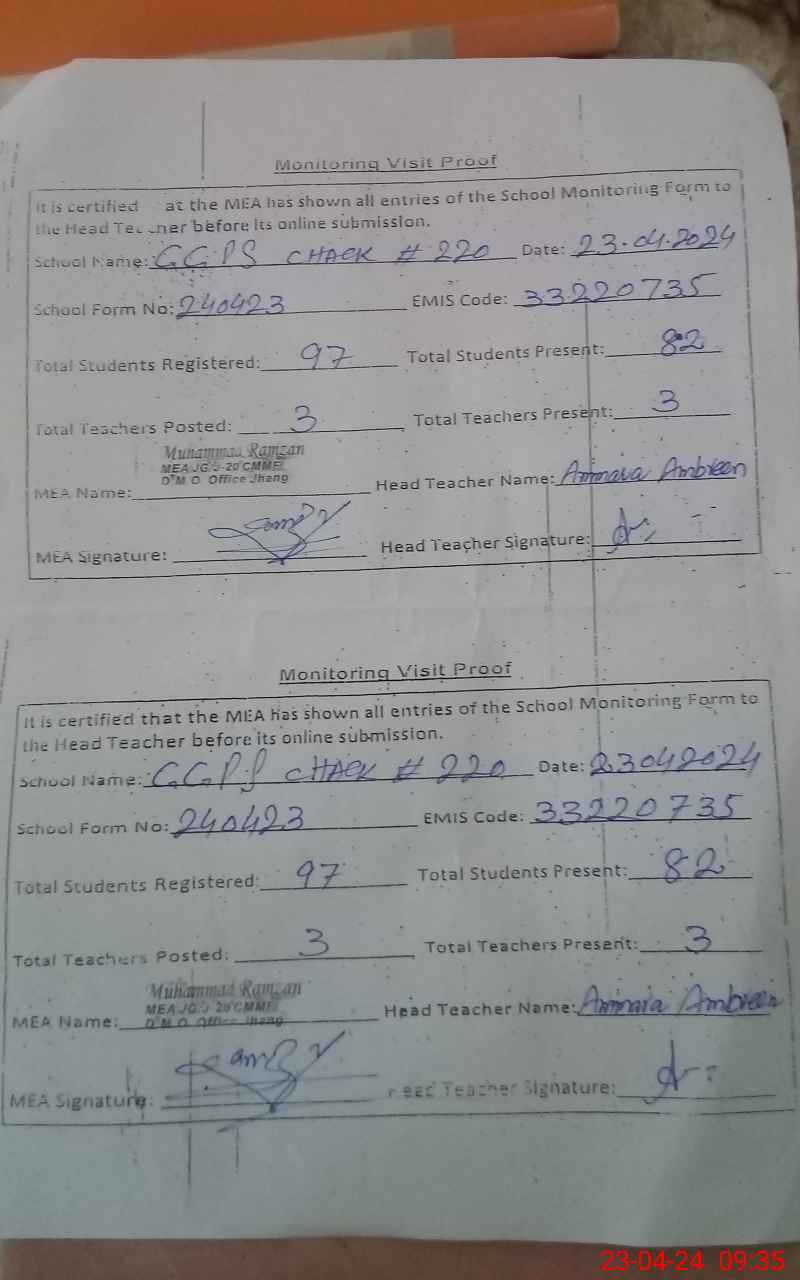 Monitoring Visit Proof
It is certified at the MEA has shown all entries of the School Monitoring Form to
the Head Teacher before its online submission.
School Name: GGPS CHACK # 220 Date: 23.04.2024
School Form No: 240423 EMIS Code: 33220735
Total Students Registered: 97 Total Students Present: 82
Total Teachers Posted: 3 Total Teachers Present: 3
Muhammad Ramzan
MEA JG
D.M.O. Office Jhang
MEA Name: Head Teacher Name: Ammara Ambreen
MEA Signature: Head Teacher Signature:
Monitoring Visit Proof
It is certified that the MEA has shown all entries of the School Monitoring Form to
the Head Teacher before its online submission.
School Name: GGPS CHACK # 220 Date: 23042024
School Form No: 240423 EMIS Code: 33220735
Total Students Registered: 97 Total Students Present: 82
Total Teachers Posted: 3 Total Teachers Present: 3
Muhammad Ramzan
MEA JG
D.M.O. Office Jhang
MEA Name: Head Teacher Name: Ammara Ambreen
MEA Signature: Head Teacher Signature:
23-04-24 09:35